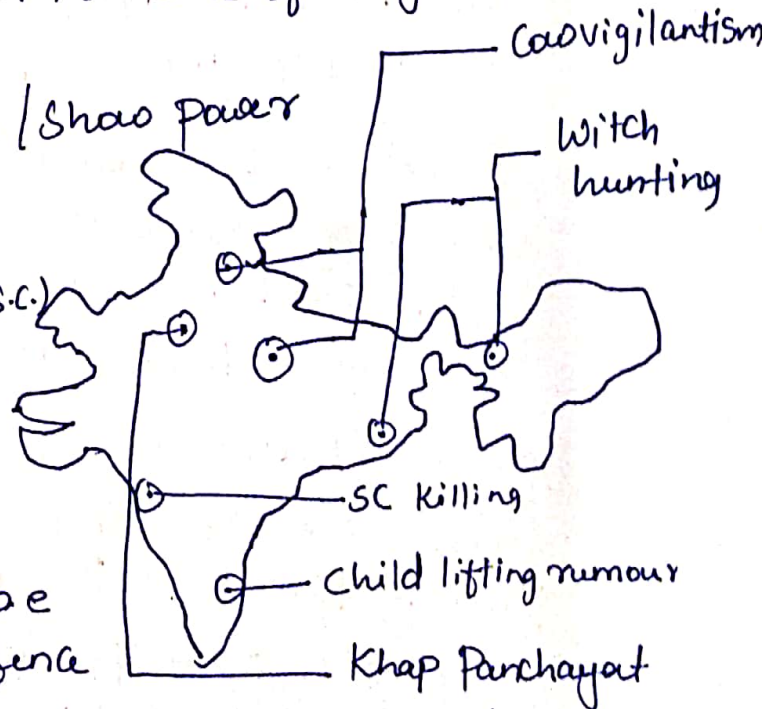 Cowvigilantism
/Show power
Witch
hunting
S.C.)
SC killing
Child lifting rumour
Khap Panchayat